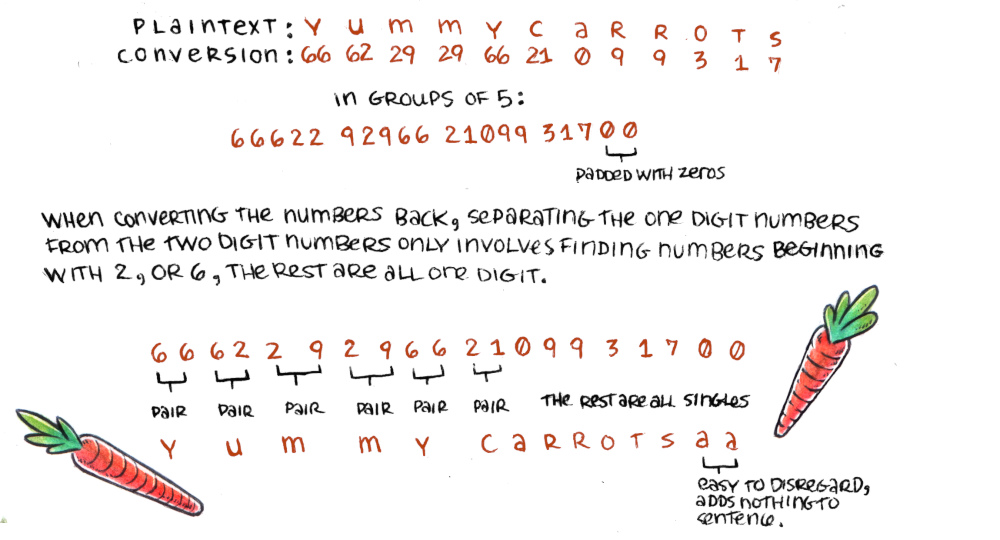 PLaInTexT: Y u m m Y C a R R O T S
COnVeRSIOn: 66 62 29 29 66 21 0 9 9 3 1 7
In GROUPS OF 5:
66622 92966 21099 31700
PaDDeD WITH zeROS
WHen COnVeRTInG THe numBeRS BaCK, SePaRaTInG THe One DIGIT numBeRS
FROm THe TWO DIGIT numBeRS OnLY InVOLVeS FInDInG numBeRS BeGInnInG
WITH 2, OR 6, THe ReST aRe aLL One DIGIT.
6 6 6 2 2 9 2 9 6 6 2 1 0 9 9 3 1 7 0 0
PaIR PaIR PaIR PaIR PaIR PaIR THe ReST aRe aLL SInGLeS
Y u m m Y C a R R O T S a a
easY TO DISReGaRD,
aDDS nOTHInG TO
senTenCe.